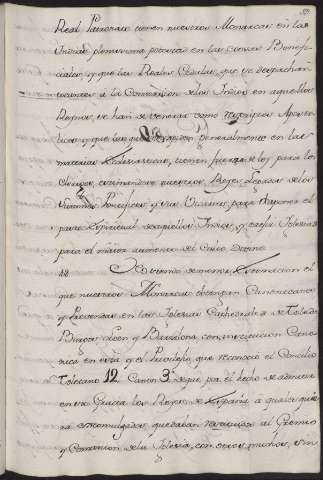 Real Patronato tienen nuestros Monarcas en las
Indias plenisima potestad en las cosas Benefi-
ciales, y que las Reales Cedulas, que se despachan
tocantes a la Conversion de los Indios en aquellos
Reynos, se han de venerar como rescriptos Aposto-
licos y que las que generalmente en las
materias Eclesiasticas, tienen fuerza de ley para los
Clerigos, estimandose nuestros Reyes Legados de los
Sumos Pontifices y sus Vicarios, para disponer el
pasto Espiritual de aquellos Indios, y de las Iglesias
para el maior aumento del Culto Divino
18 No es timbre de menos Estimacion el
que nuestros Monarcas obtengan Canonicatos
y Prevendas en las Iglesias Cathedrales de Toledo
Burgos Leon y Barcelona, con institucion Cano-
nica en ellas y el Privilegio, que reconoció el Concilio
Toledano 12 Canon 3 de que por el hecho de admitir
en su Gracia los Reyes de España a qualesquie-
ra excomulgados, quedaban restituidos al Gremio
y Comunion de la Iglesia, con otros muchos, sin